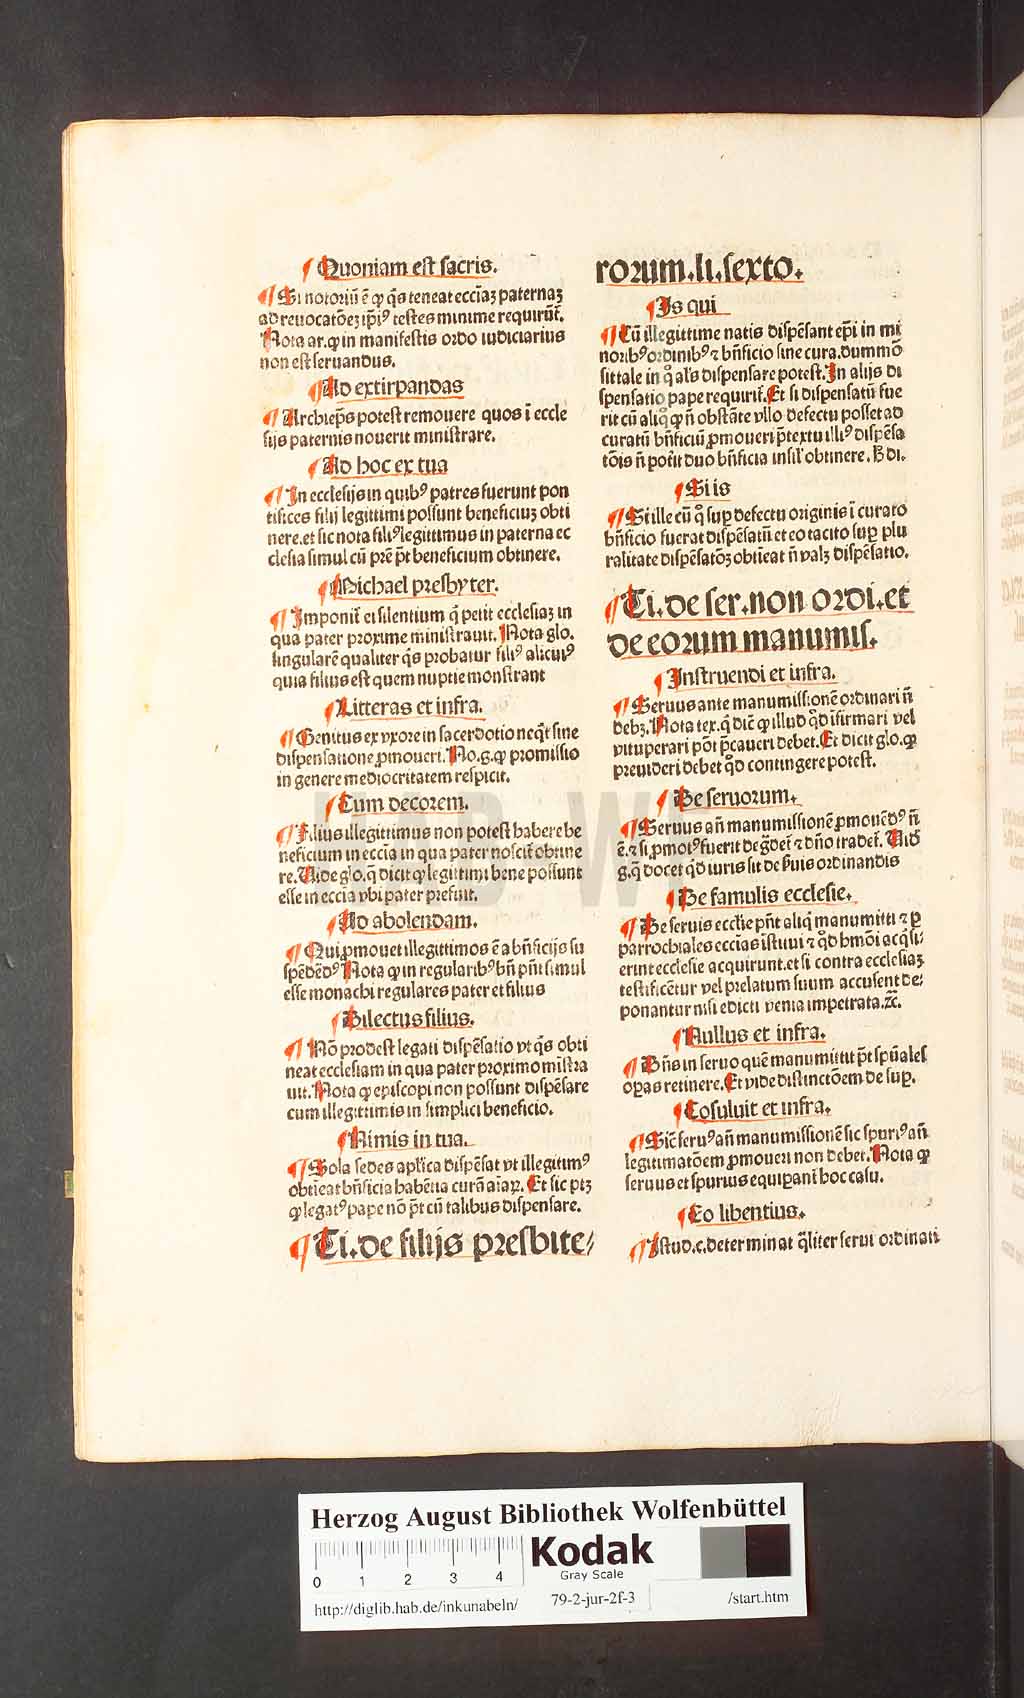 ¶ Quoniam est sacris.
¶ Si notoriū ē ꝙ q̄s teneat ecciaꝫ paternaꝫ
ad reuocatōeꝫ ip̄iꝰ testes minime requirūt̄.
Nota ar. ꝙ in manifestis ordo iudiciarius
non est seruandus.
¶ Ad extirpandas
¶ Archiep̄s potest remouere quos ī eccle
sijs paternis nouerit ministrare.
¶ Ad hoc ex tua
¶ In ecclesijs in quibꝰ patres fuerunt pon
tifices filij legittimi possunt beneficiuꝫ obti
nere. et sic nota filiꝰ legittimus in paterna ec
clesia simul cū pr̄e p̄t beneficium obtinere.
¶ Michael presbyter.
¶ Imponit̄ ei silentium q̄ petit ecclesiaꝫ in
qua pater proxime ministrauit. Nota glo.
singularē qualiter q̄s probatur filiꝰ alicuiꝰ
quia filius est quem nuptie monstrant
¶ Litteras et infra.
¶ Genitus ex vxore in sacerdotio neq̄t sine
dispensatione ꝓmoueri. No. g. ꝙ promissio
in genere mediocritatem respicit.
¶ Cum decorem.
¶ Filius illegittimus non potest habere be
neficium in eccia in qua pater noscit̄ obtine
re. Vide glo. q̄ dicit ꝙ legittimi bene possunt
esse in eccia vbi pater prefuit.
¶ Ad abolendam.
¶ Qui ꝓmouet illegittimos ē a bn̄ficijs su
spēdēdꝰ Nota ꝙ in regularibꝰ bn̄ pn̄t simul
esse monachi regulares pater et filius
¶ Dilectus filius.
¶ Nō prodest legati dispēsatio vt q̄s obti
neat ecclesiam in qua pater proximo mīstra
uit. Nota ꝙ episcopi non possunt dispēsare
cum illegittimis in simplici beneficio.
¶ Nimis in tua.
¶ Sola sedes aplica dispēsat vt illegitimꝰ
obtīeat bn̄ficia habētia curā aīaꝝ. Et sic ptꝫ
ꝙ legatꝰ pape nō p̄t cū talibus dispensare.
¶ Ti. de filijs presbite/
rorum. li. sexto.
¶ Is qui
¶ Cū illegittime natis dispēsant ep̄i in mi
noribꝰ ordinibꝰ ⁊ bn̄ficio sine cura. dummō
sit tale in q̄ al's dispensare potest. In alijs di
spensatio pape requirit̄. Et si dispensatū fue
rit cū aliq̄ ꝙ n̄ obstāte vllo defectu posset ad
curatū bn̄ficiū ꝓmoueri p̄textu illiꝰ dispēsa
tōis n̄ pot̄it duo bn̄ficia insil' obtinere. B di.
¶ Si is
¶ Si ille cū q̄ suꝑ defectu originis ī curato
bn̄ficio fuerat dispēsatū et eo tacito suꝑ plu
ralitate dispēsatōꝫ obtīeat n̄ valꝫ dispēsatio.
¶ Ti. de ser. non ordi. et
de eorum manumis.
¶ Instruendi et infra.
¶ Seruus ante manumissionē ordinari n̄
debꝫ. Nota tex. q̄ dic̄ ꝙ illud q̄d īfirmari vel
vituperari pōt p̄caueri debet. Et dicit glo. ꝙ
preuideri debet q̄d contingere potest.
¶ De seruorum.
¶ Seruus an̄ manumissionē ꝓmouēdꝰ n̄
ē. ⁊ si ꝓmotꝰ fuerit de gͣdet̄ ⁊ dn̄o tradet̄. Vid̄
g. q̄ docet q̄d iuris sit de ẜuis ordinandis
¶ De famulis ecclesie.
¶ De seruis ecclīe pn̄t aliq̄ manumitti ⁊ ꝑ
parrochiales eccias īstitui ⁊ q̄d hmōi acq̄si/
erint ecclesie acquirunt. et si contra ecclesiaꝫ
testificētur vel prelatum suum accusent de/
ponantur nisi edicti venia impetrata. ⁊c̄.
¶ Nullus et infra.
¶ Dn̄s in seruo quē manumittit p̄t spūales
opas retinere. Et vide distinctōem de suꝑ.
¶ Cōsuluit et infra.
¶ Sic̄ seruꝰ an̄ manumissionē sic spuriꝰ an̄
legitimatōem ꝓmoueri non debet. Nota ꝙ
seruus et spurius equiꝑant̄ hoc casu.
¶ Eo libentius.
¶ Istud. c. determinat q̄liter serui ordinati
Herzog August Bibliothek Wolfenbüttel
Kodak
Gray Scale
0 1 2 3 4
http://diglib.hab.de/inkunabeln/ 79-2-jur-2f-3 /start.htm